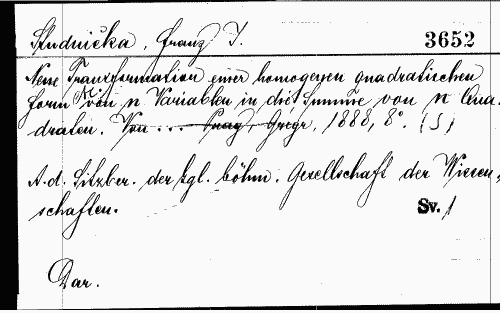 Studnička, Franz J. 3652
Neue Transformation einer homogenen quadratischen
Form von n Variablen in die Summe von n Qua-
draten. Von ... Prag, Grégr, 1888, 8°. (S)
A. d. Sitzber. der kgl. böhm. Gesellschaft der Wissen-
schaften. Sv. 1
Dar.